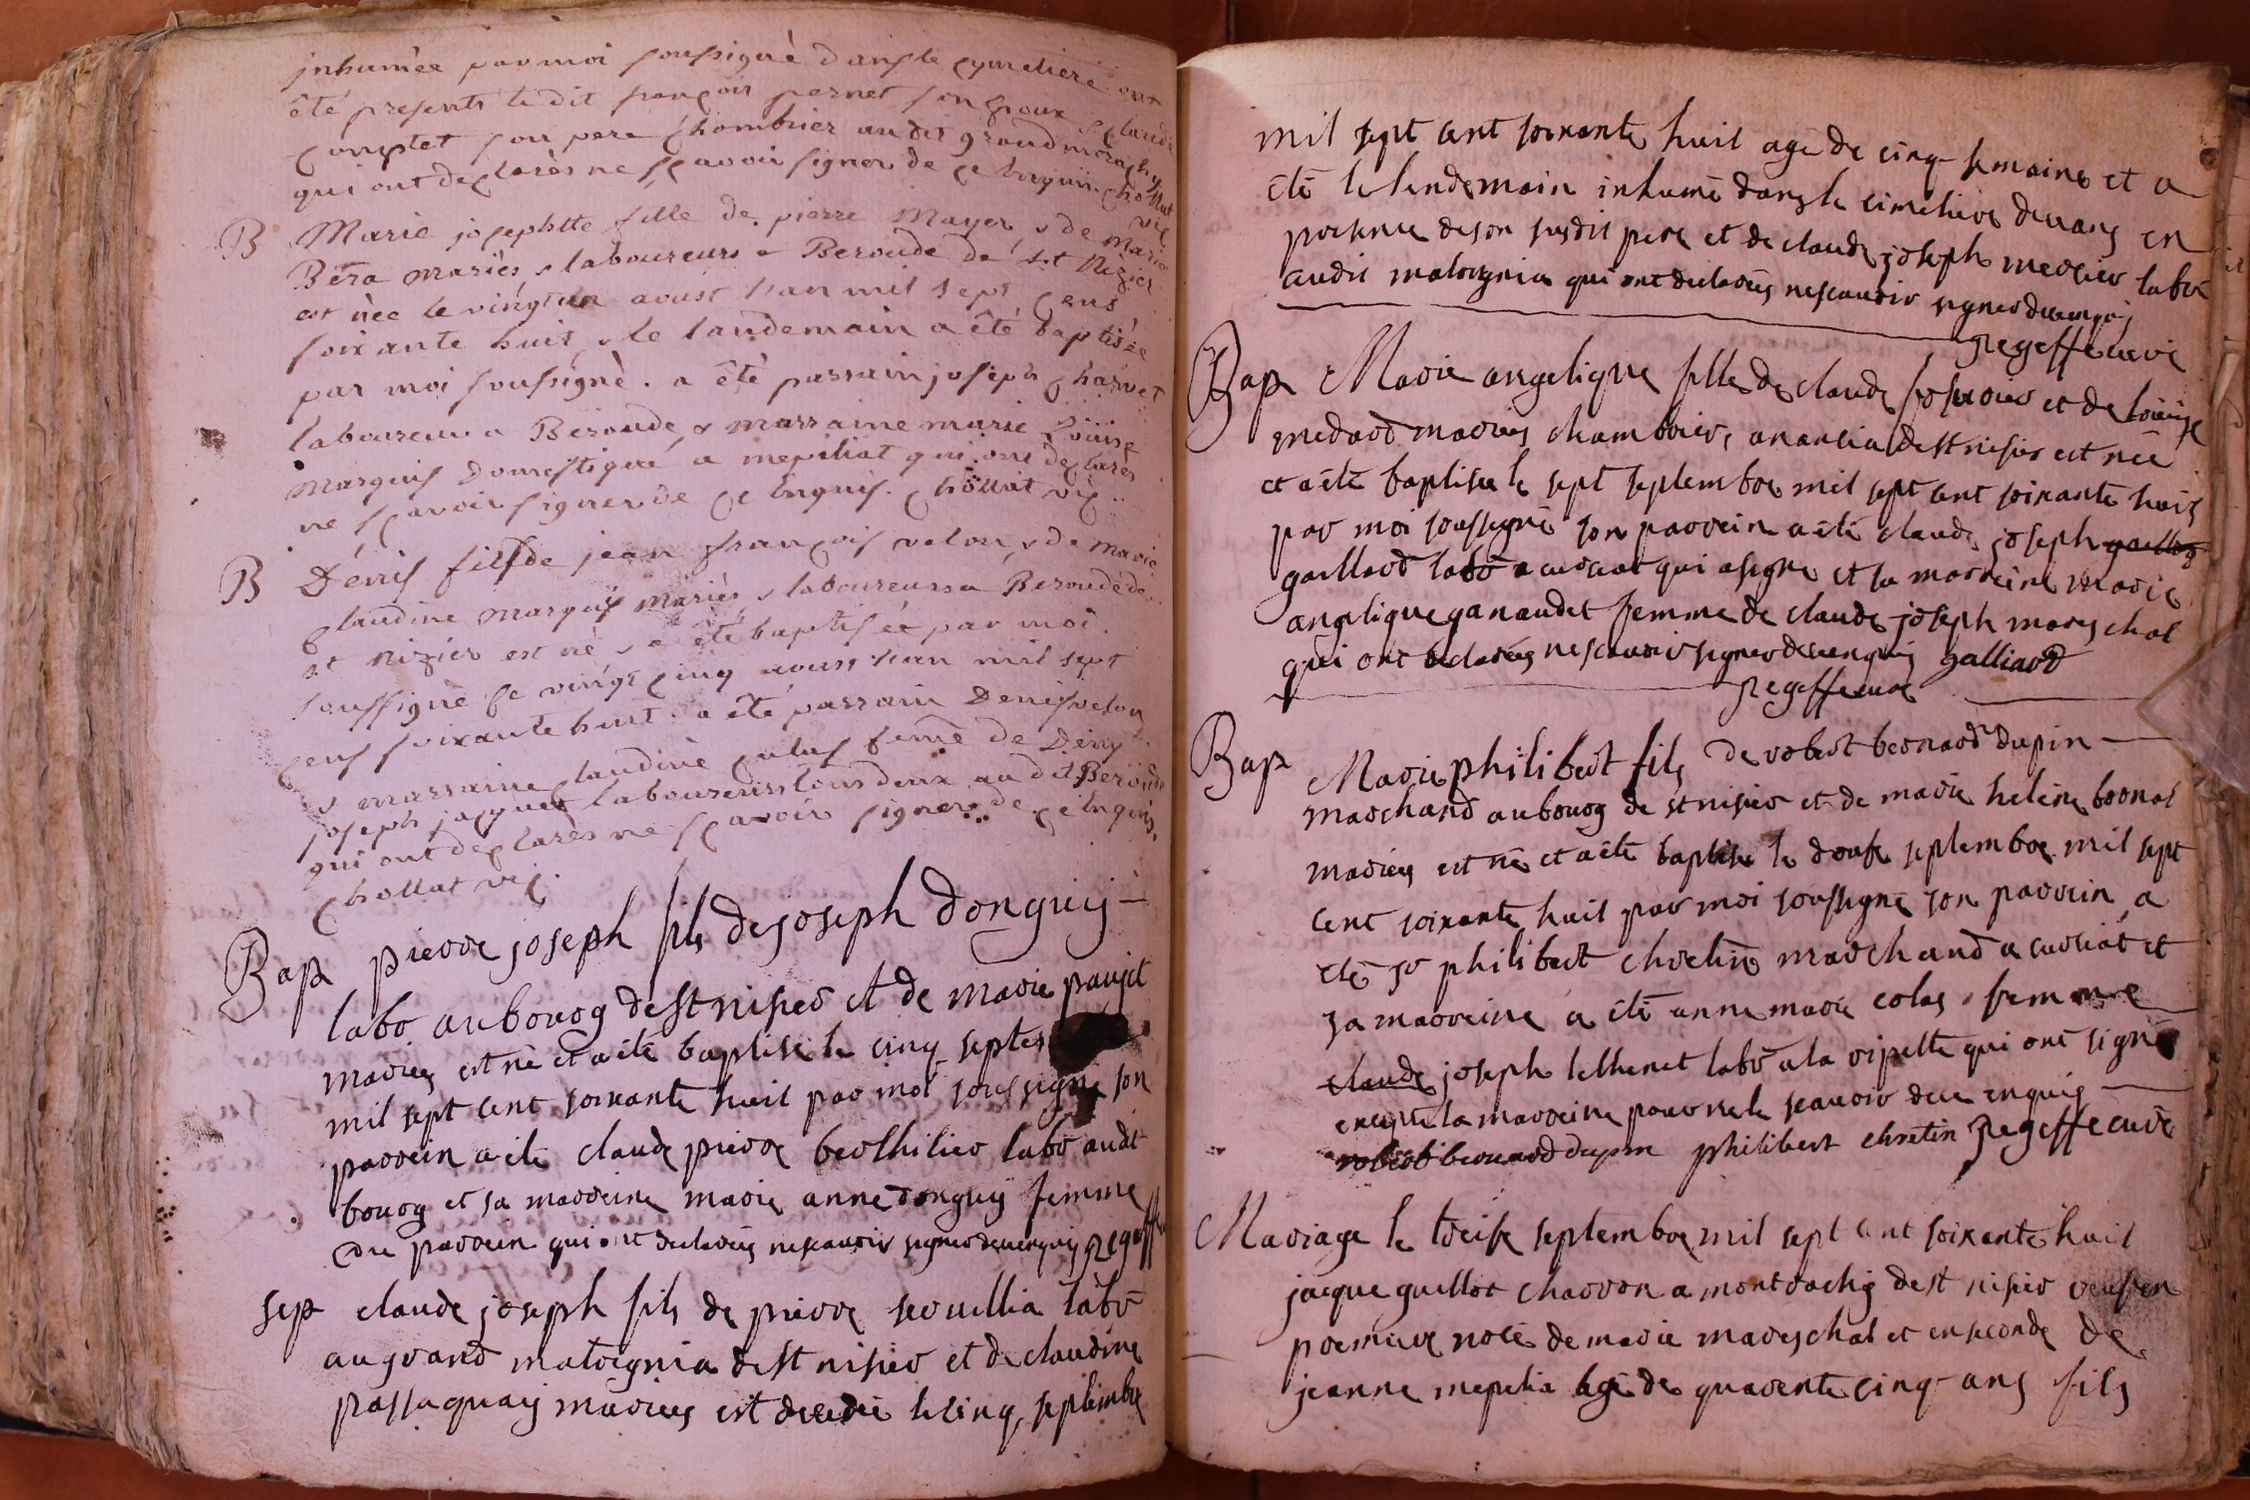 inhumée par moi soussigné dans le cymetiere ont
été presents le dit françois pernet son epoux & claude
comptet son pere chambrier au dit grand
qui ont declarès ne sçavoir signer de ce enquis chollat vic
B Marie josephtte fille de pierre Mayer & de Marie
Béra mariès & laboureurs a Beroude de st Nizier
est née le vingt un aoust l'an mil sept cens
soixante huit, & le landemain a été baptisée
par moi soussigné. a été parrain joseph charvet
laboureur a Béroude, & marraine marie Loüise
marquis Domestique a mepiliat qui ont declarès
ne sçavoir signer de ce enquis. chollat vic.
B Denis fils de jean françois velon & de marie
claudine marquis mariès & laboureurs a Beroude de
st nizier est né & a été baptisée par moi
soussigné le vingt cinq aoust l'an mil sept
cens soixante huit. a été parrain Denis velon
& marraine claudine femme de Deny
joseph jacquet laboureurs tous deux au dit Beroude
qui ont declarès ne sçavoir signer de ce enquis.
chollat vic.
Bap pierre joseph fils de joseph donguij
labo^r au bourg de st nisier et de marie paujet
mariés est né et a été baptisé le cinq septe
mil sept cent soixante huit par moi soussigné son
parrein a été claude pierre berthilier labo^r audt
bourg et sa marreine marie anne donguij femme
du parrein qui ont declarés ne scavoir signer de ce enquis regeffe
sep claude joseph fils de pierre servillia labo^r
au grand matregnia de st nisier et de claudine
passaquaij mariés est decedé le cinq septembre
mil sept cent soixante huit agé de cinq semaine et a
été le lendemain inhumé dans le cimetiere ceans en
presence de son susdit pere et de claude joseph mercier labo^r
audit matregnia qui ont declarés ne scavoir signer de ce enquis
regeffe curé
Bap Marie angelique fille de claude et de loüise
medard mariés chambrier, a de st nisier est née
et a été baptisée le sept septembre mil sept cent soixante huit
par moi soussigné son parrein a été claude joseph
gaillard labo^r a curciat qui a signé et sa marreine marie
angelique ganaudet femme de claude joseph mareschal
qui ont declarés ne scavoir signer de ce enquis galliard
regeffe curé
Bap Marie philibert fils de robert bernard dupin
marchand au bourg de st nisier et de marie helene bornat
mariés est né et a été baptisé le douse septembre mil sept
cent soixante huit par moi soussigné son parrein a
été s^r philibert chretin marchand a curciat et
sa marreine a été anne marie colas femme
claude joseph lethenet labo^r a la vipette qui ont signé
excepté la marreine pour ne le scavoir de ce enquis
robert bernard dupin philibert chretin regeffe curé
Mariage le treise septembre mil sept cent soixante huit
jacque guillot charron a montrachij de st nisier veuf en
premiere noce de marie mareschal et en seconde de
jeanne mepelia agé de quarente cinq ans fils